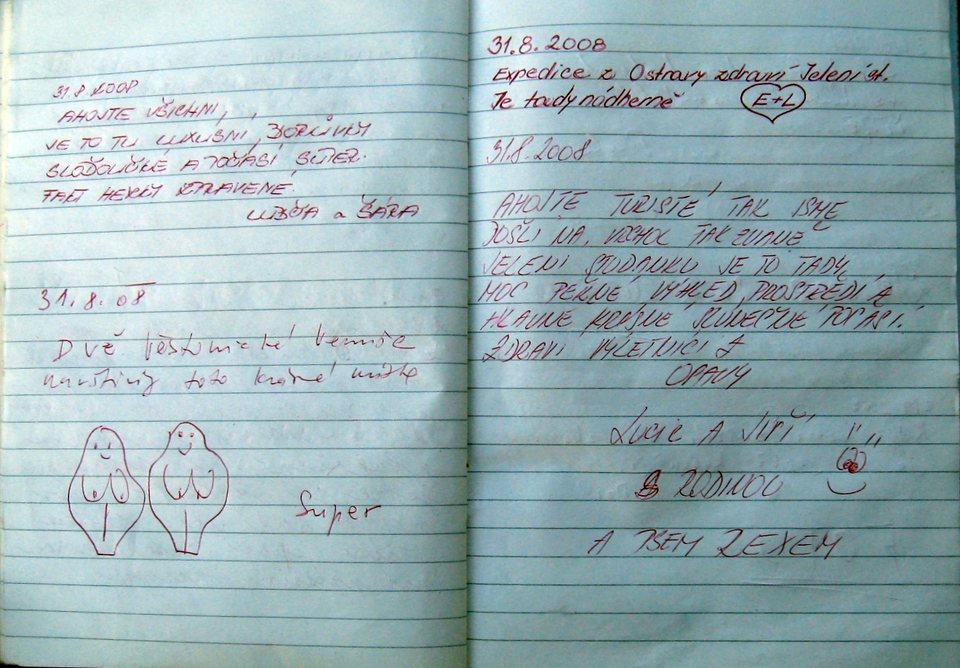 31.8.2008
AHOJTE VŠICHNI,
JE TO TU LUXUSNÍ, BORŮVKY
SLAĎOUČKÉ A POČASÍ SUPER.
FAKT HEZKY STRÁVENÉ.
a ŠÁRA
31.8.08
Dvě Věstonické Venuše
navštívily toto krásné místo
Super
31.8.2008
Expedice z Ostravy zdraví Jelení st.
Je tady nádherně
E+L
31.8.2008
AHOJTE TURISTÉ TAK JSME
DOŠLI NA VRCHOL TAK ZVANÉ
JELENÍ STUDÁNKU JE TO TADY
MOC PĚKNÉ, VÝHLED, PROSTŘEDÍ A
HLAVNĚ KRÁSNÉ SLUNEČNÉ POČASÍ.
ZDRAVÍ VÝLETNÍCI Z
OPAVY
Lucie A Jiří
S RODINOU
A PSEM